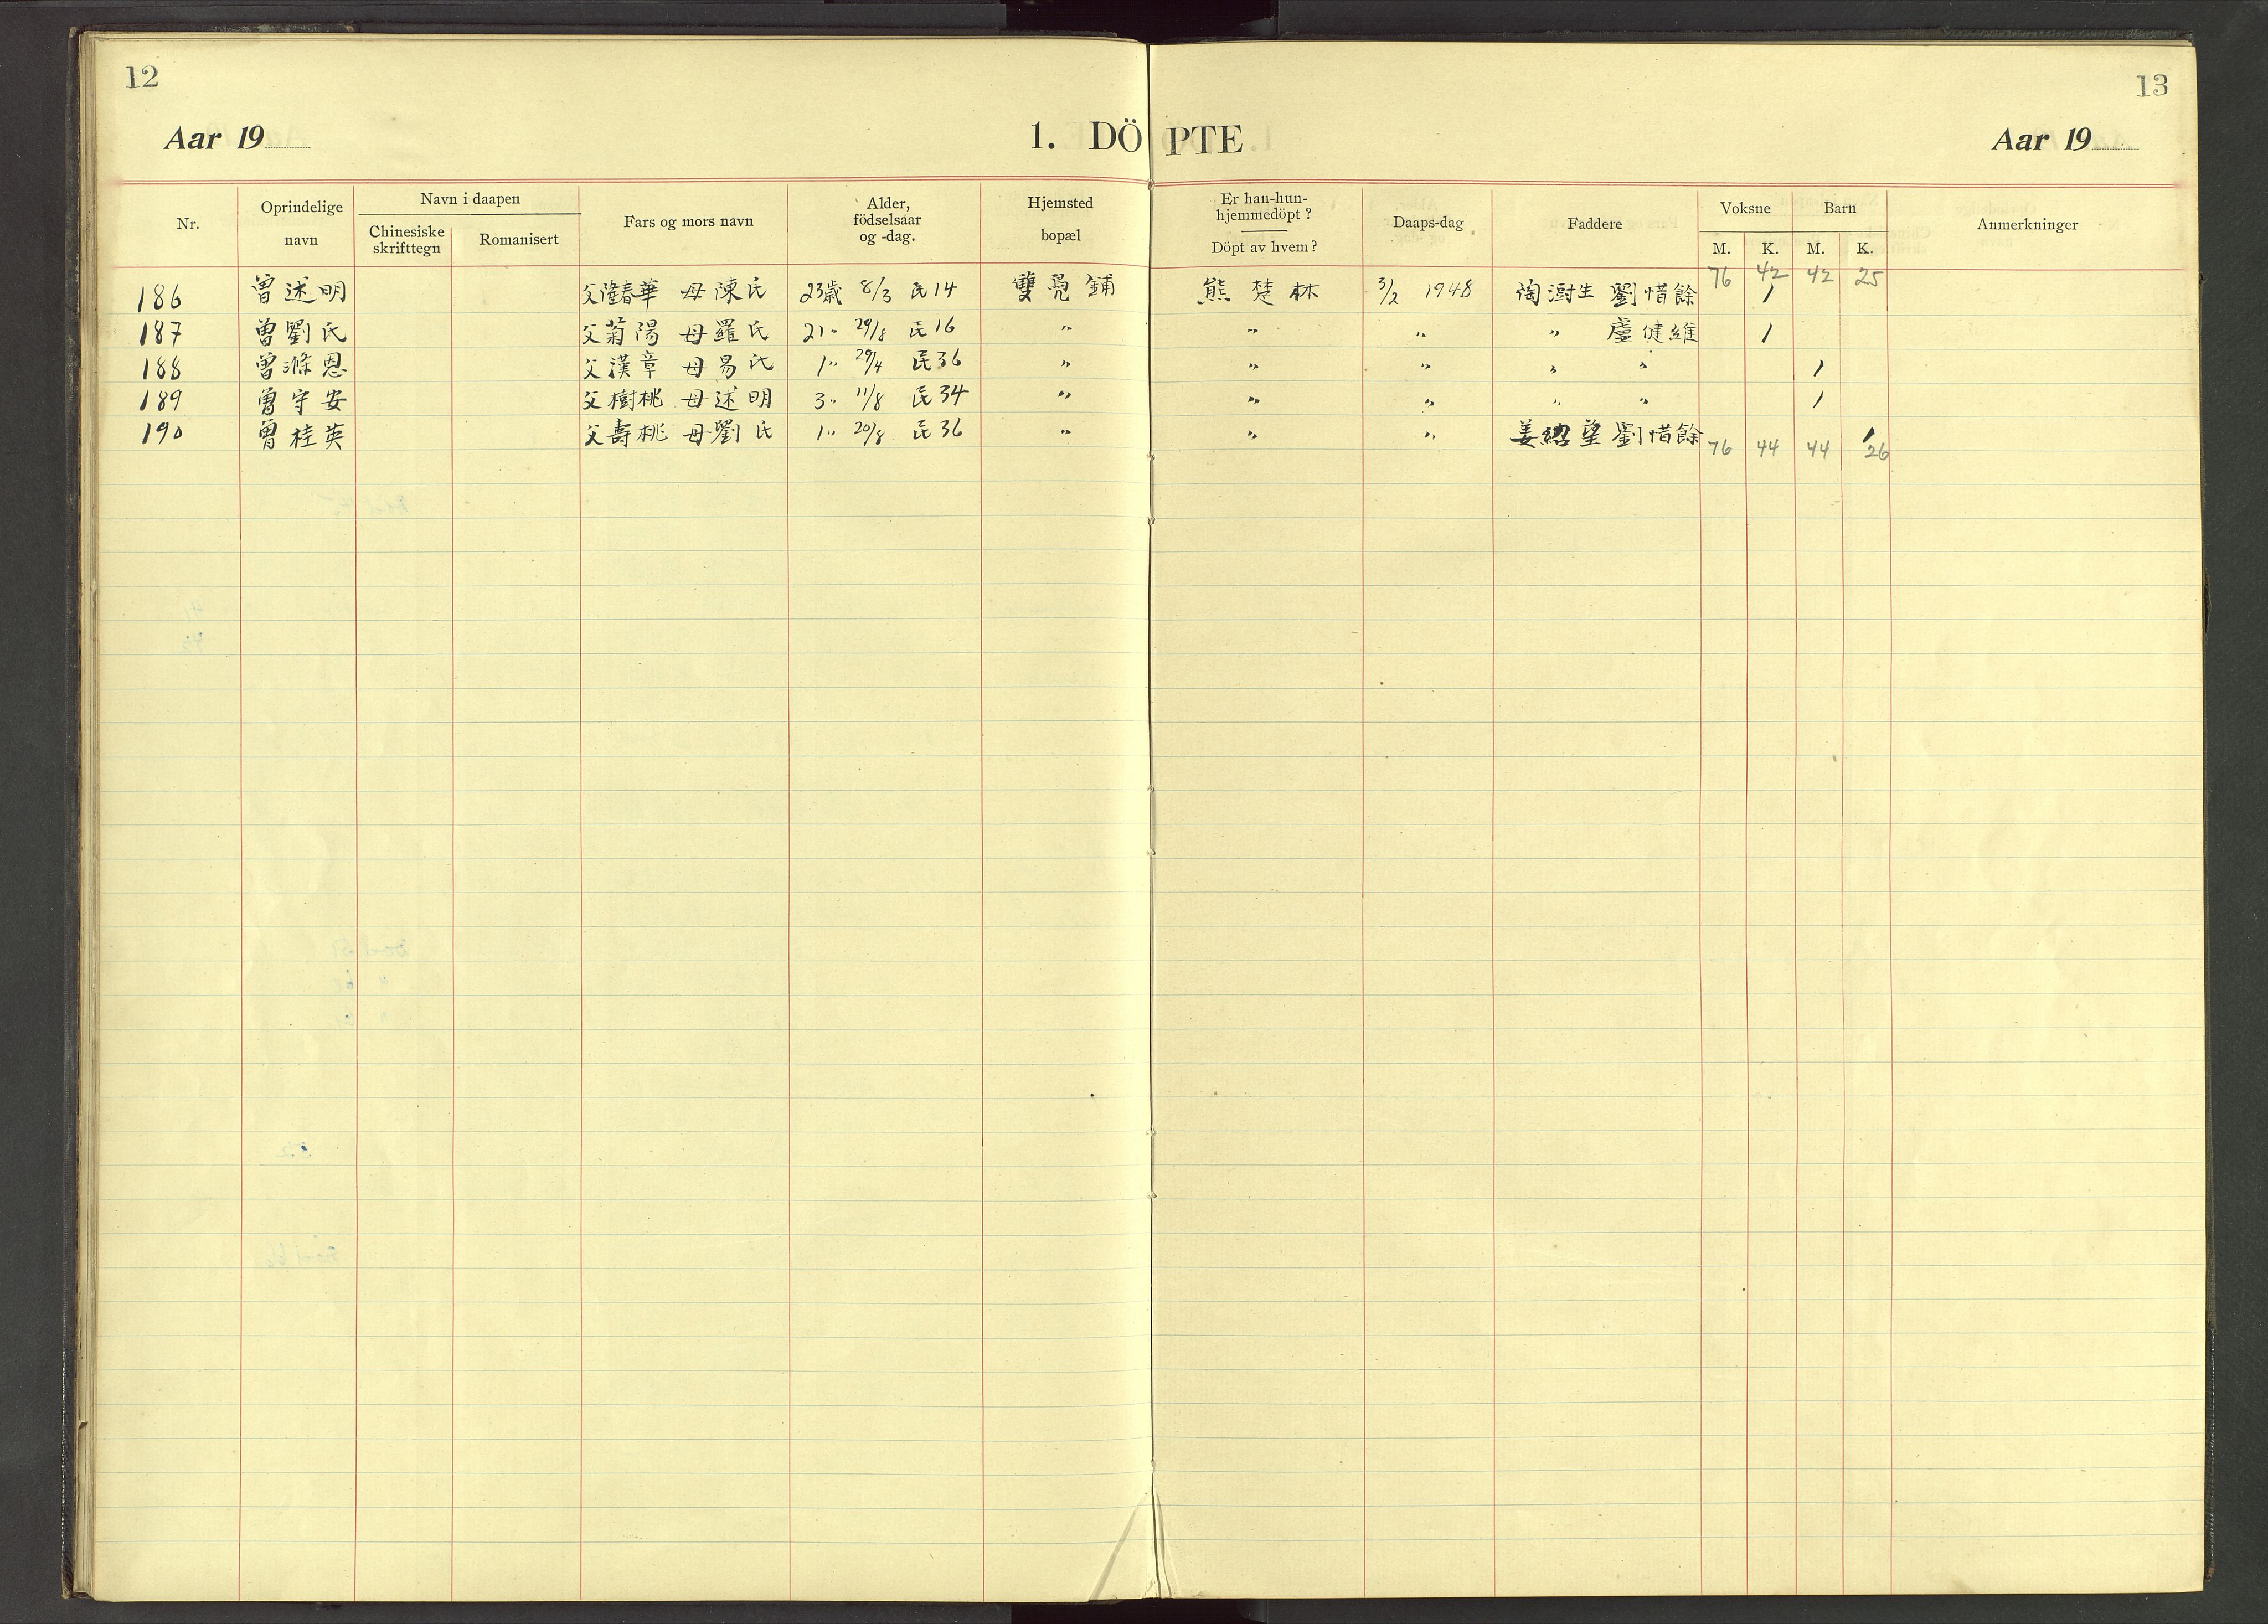 12
13
Aar 19
1. DÖPTE
Aar 19
Nr.
Oprindelige navn
Navn i daapen
Chinesiske skrifttegn
Romanisert
Fars og mors navn
Alder, födselsaar og -dag.
Hjemsted bopæl
Er han-hun-hjemmedöpt?
Döpt av hvem?
Daaps-dag
Faddere
Voksne
M. K.
Barn
M. K.
Anmerkninger
76 42 42 25
186 曾述明 父隆春華 母陳氏 23歲 8/3 民14 雙凫鋪 熊楚林 3/2 1948 陶澍生 劉惜餘 1
187 曾劉氏 父菊陽 母羅氏 21〃 29/8 民16 〃 〃 〃 〃 盧健維 1
188 曾滌恩 父漢章 母易氏 1〃 29/4 民36 〃 〃 〃 〃 〃 1
189 曾守安 父樹桃 母述明 3〃 11/8 民34 〃 〃 〃 〃 〃 1
190 曾桂英 父壽桃 母劉氏 1〃 20/8 民36 〃 〃 〃 姜紹望 劉惜餘 1
76 44 44 26